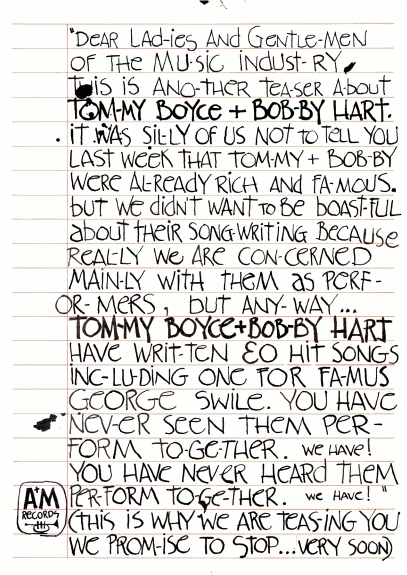 "DEAR LAD-IES AND GENTLE-MEN
OF THE MU-SIC INDUST-RY,
THIS IS ANO-THER TEA-SER ABOUT
TOM-MY BOYCE + BOB-BY HART.
IT WAS SIL-LY OF US NOT TO TELL YOU
LAST WEEK THAT TOM-MY + BOB-BY
WERE AL-READY RICH AND FA-MOUS.
BUT WE DIDN'T WANT TO BE BOAST-FUL
ABOUT THEIR SONG-WRITING BECAUSE
REAL-LY WE ARE CON-CERNED
MAIN-LY WITH THEM AS PERF-
OR-MERS, BUT ANY-WAY...
TOM-MY BOYCE+BOB-BY HART
HAVE WRIT-TEN 80 HIT SONGS
INC-LU-DING ONE FOR FA-MUS
GEORGE SWILE. YOU HAVE
NEV-ER SEEN THEM PER-
FORM TO-GE-THER. WE HAVE!
YOU HAVE NEVER HEARD THEM
PER-FORM TO-GE-THER. WE HAVE!"
(THIS IS WHY WE ARE TEAS-ING YOU
WE PROM-ISE TO STOP...VERY SOON)
A&M
RECORDS